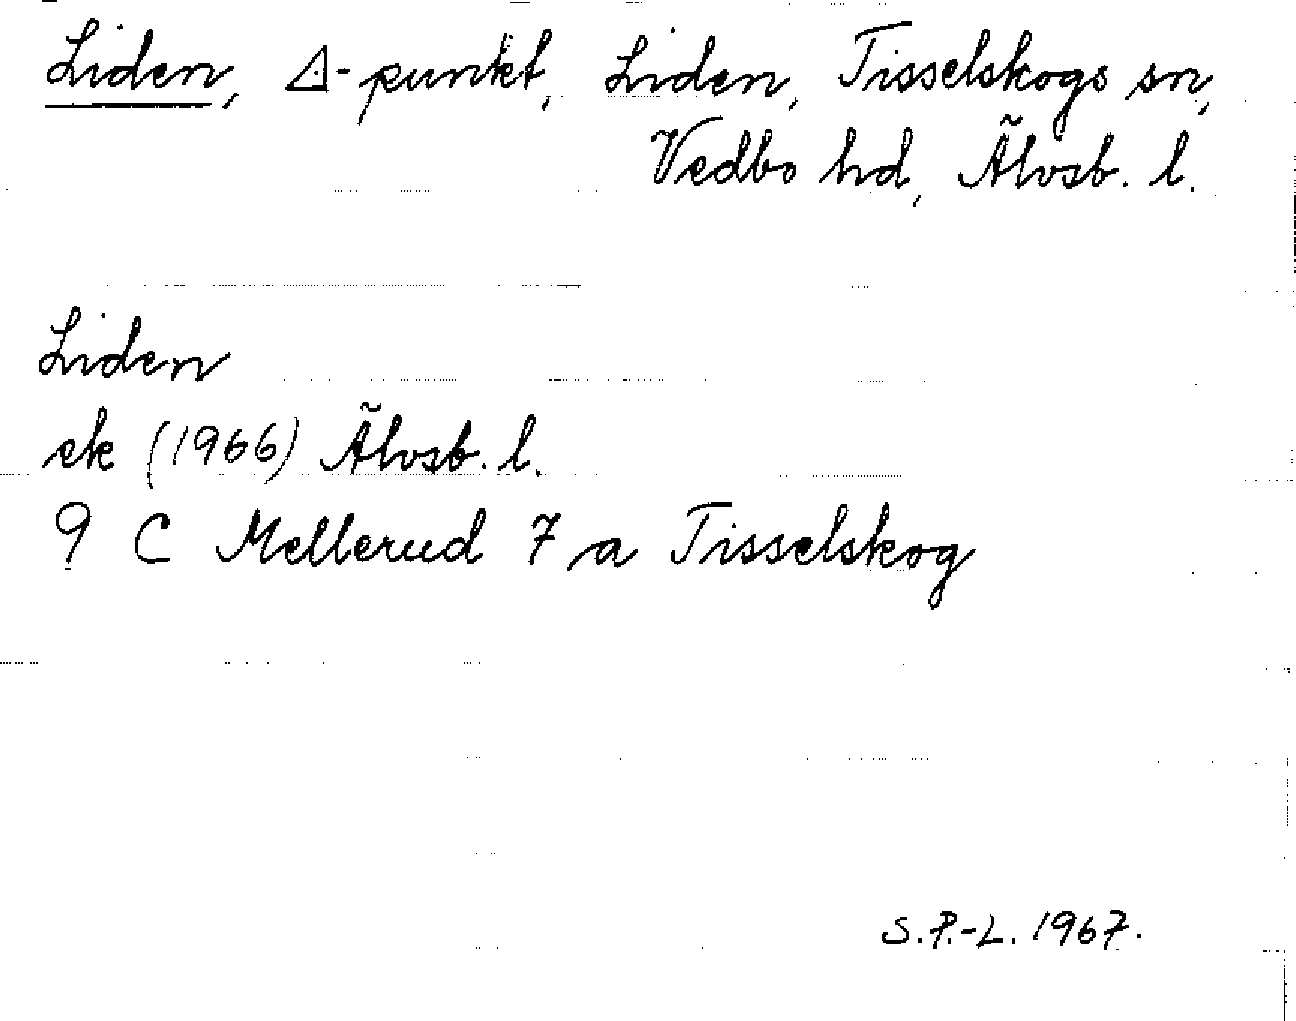 Liden, △-punkt, Liden, Tisselskogs sn,
Vedbo hd, Älvsb. l.
Liden
ek (1966) Älvsb. l.
9 C Mellerud 7 a Tisselskog
S.P.-L. 1967.